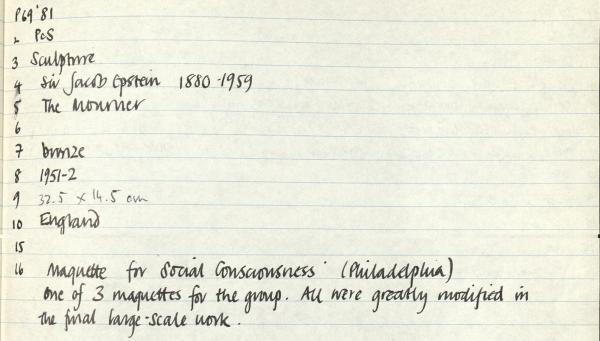 P69'81
2 PCS
3 Sculpture
4 Sir Jacob Epstein 1880-1959
5 The Mourner
6
7 bronze
8 1951-2
9 32.5 x 14.5 cm
10 England
15
16 Maquette for 'Social Consciousness' (Philadelphia)
one of 3 maquettes for the group. All were greatly modified in
the final large-scale work.